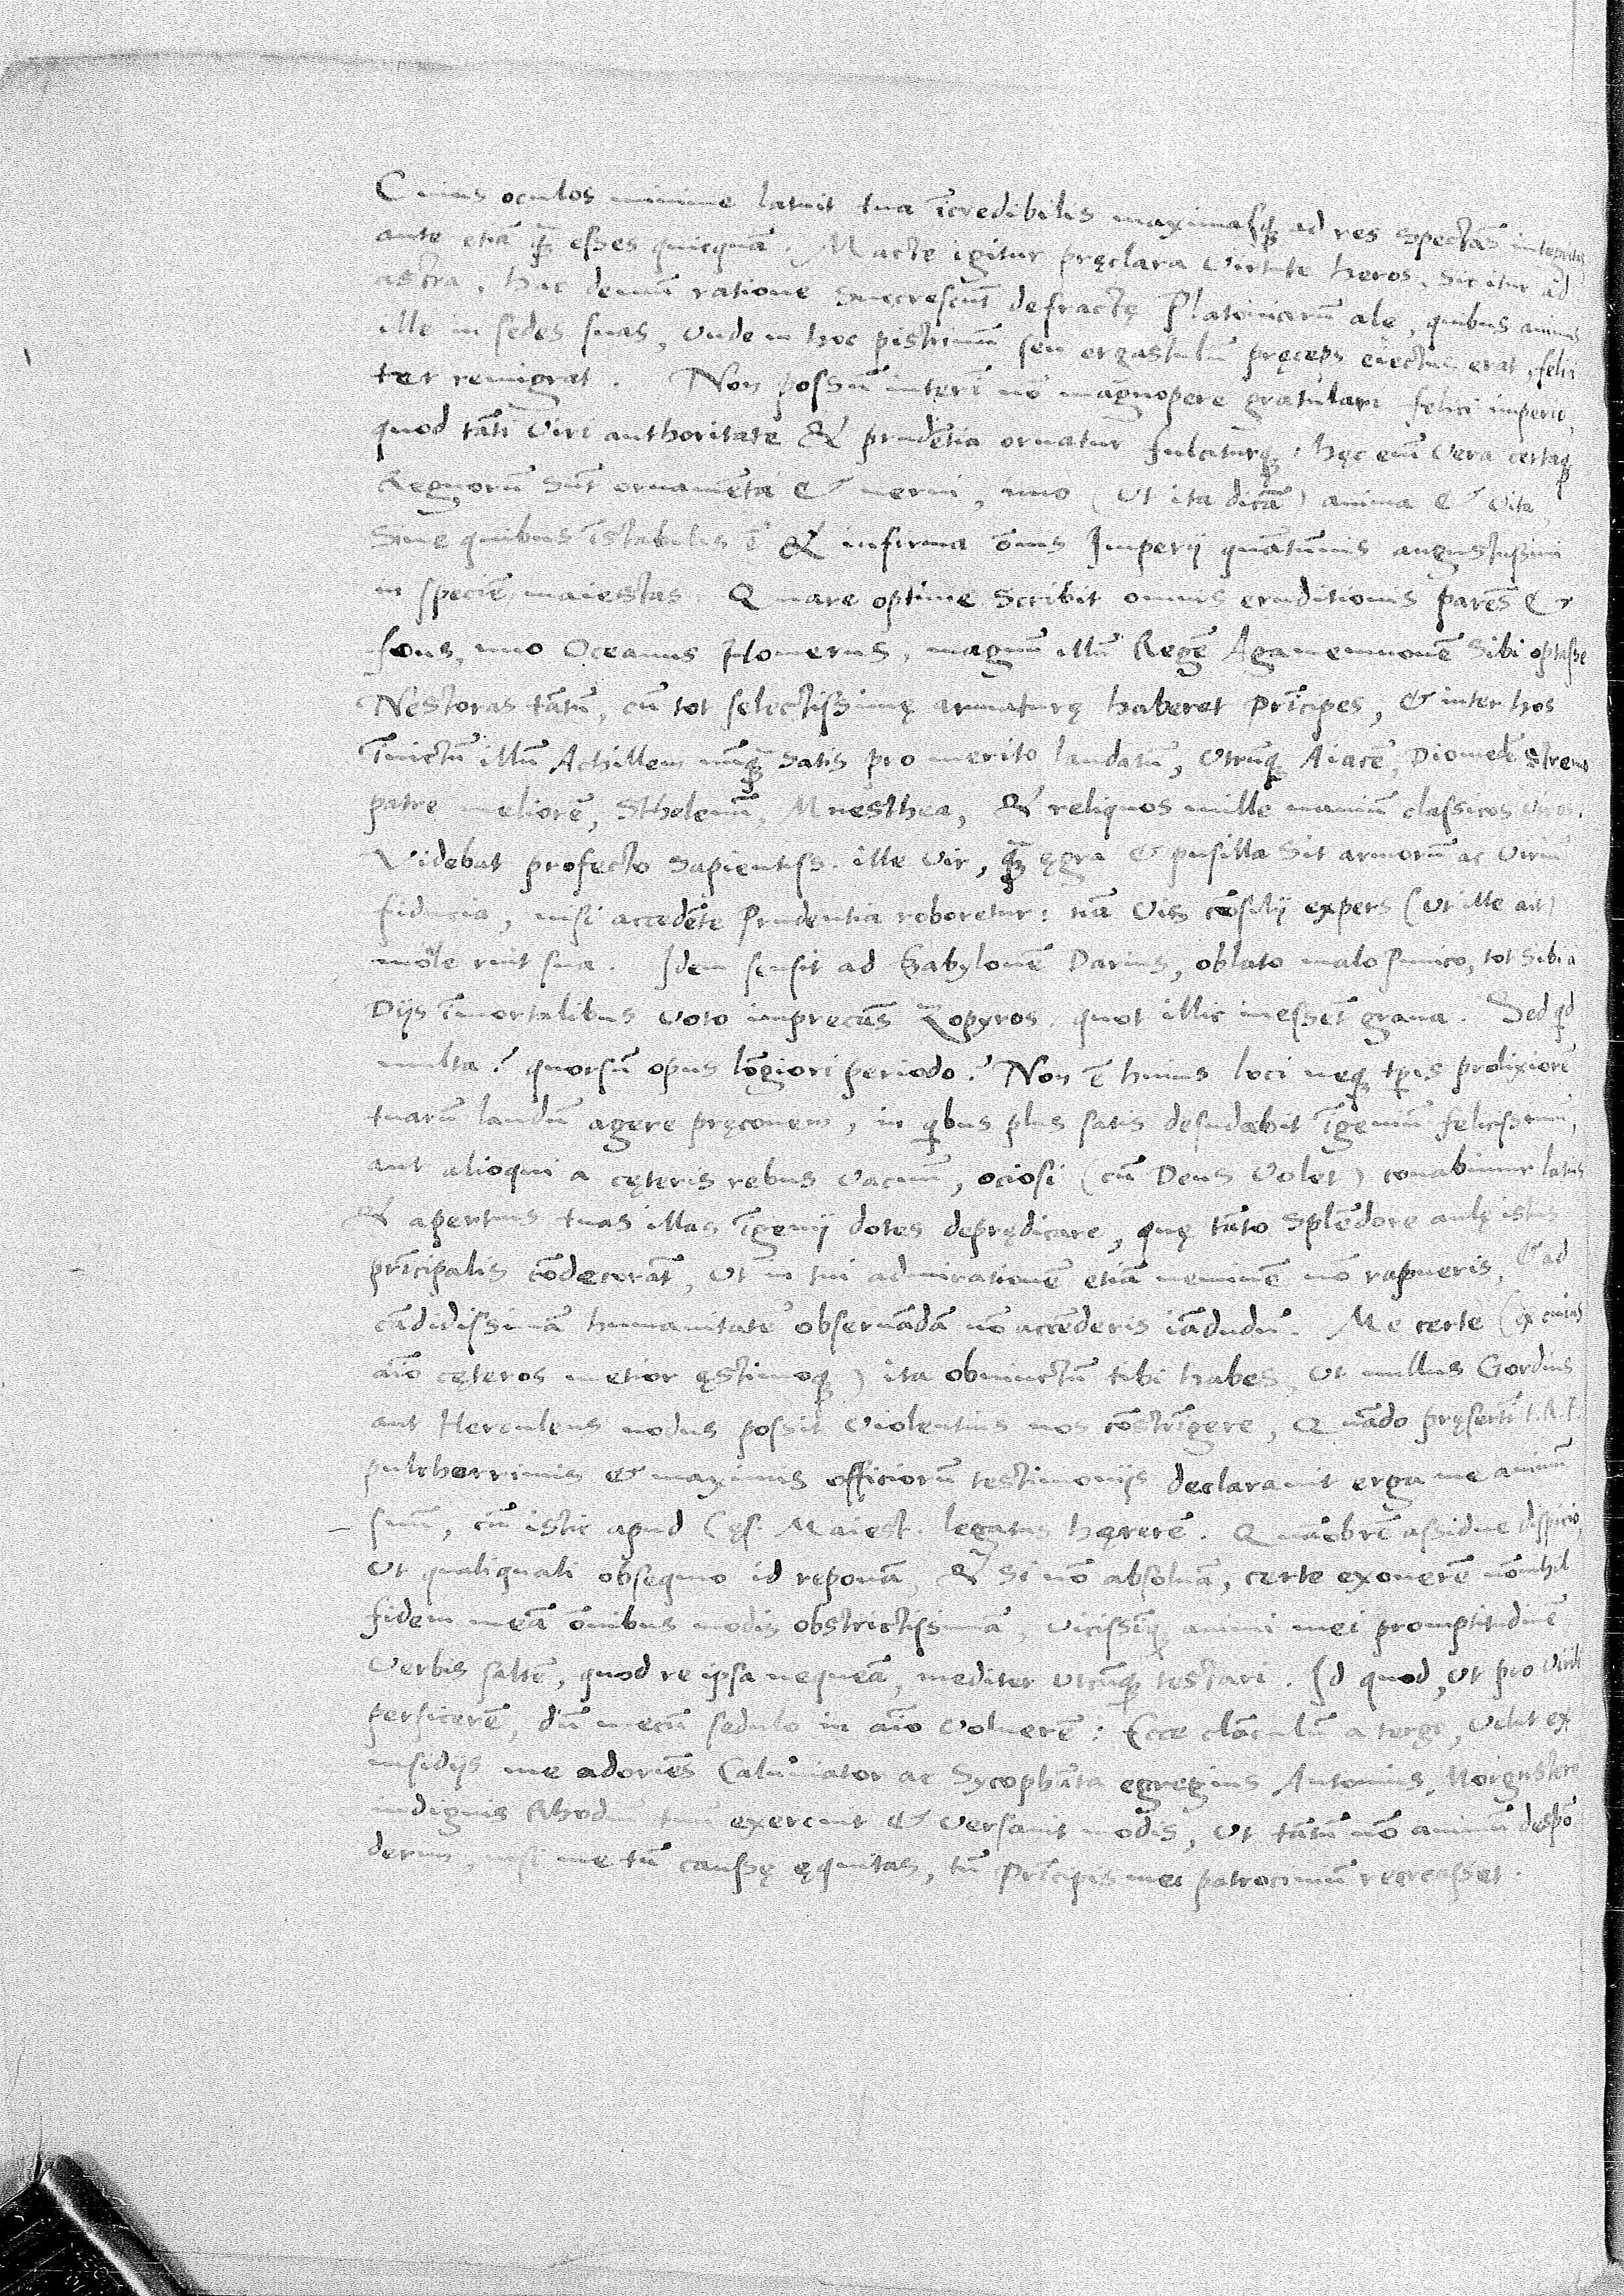 Cuius oculos minime latuit tua īcredibilis maximasq̨ ad res spectās integritas
ante etiā q̄ esses quicquā. Macte igitur pręclara virtute heros, sic itur ad
astra, hac demū ratione succrescūt defractę Platōicarum ale, quibus animus
ille in sedes suas, unde in hoc pistrinum seu ergastulū pręceps eiectus erat, felici
ter remigrat. Non possū interī nō magnopere gratulari felici imperio,
quod tāti viri authoritate & prudētia ornatur fulciturq̨: hęc enī vera certaq̨
Regnorū sūt ornamēta & nerui, imo (ut ita dicā) anima & vita,
Sine quibus īstabilis ē & infirma ōnis Imperij quātumuis augustissimi
in speciē maiestas. Quare optime scribit omnis eruditionis parēs &
fons, imo Oceanus Homerus, magnū illū Regē Agamemnonē sibi optasse
Nestoras tātū, cū tot selectissimę armaturę haberet prīcipes, & inter hos
īuictū illū Achillem nūq̄ satis pro merito laudatū, utrūq̨ Aiacē, Diomedē strenuo
patre meliorē, Sthelenū, Mnesthea, & reliquos mille nauiū classicos viros.
Videbat profecto sapientiss. ille vir, q̄ ęgra & pusilla sit armorū ac viriū
fiducia, nisi accedēte Prudentia roboretur: nā vis cōsilij expers (ut ille ait)
mole ruit sua. Idem sensit ad Babylonē Darius, oblato malo punico, tot sibi a
Dijs īmortalibus voto imprecās Zopyros, quot illic inessēt grana. Sed qd
multa? quorsū opus lōgiori periodo? Non ē huius loci neq̨ tp̄is prolixiorē
tuarū laudū agere pręconem, in qbus plus satis desudabit īgeniū felicissimū,
aut alioqui a cęteris rebus vacuū, ociosi (cū Deus volet) conabimur latius
& apertius tuas illas īgenij dotes deprędicare, quę tāto splēdore aulę istius
prīcipalis cōdecorāt, ut in tui admirationē etiā neminē nō rapueris, & ad
cādidissimā humanitatē obseruādā nō accēderis iādudū. Me certe (ex cuius
aīo cęteros metior ęstimoq̨) ita obuinctū tibi habes, ut nullus Gordius
aut Herculeus nodus possit violentius nos cōstrīgere, Quādo pręsertī t. R. P.
pulcherrimis & maximis officiorū testimonijs declarauit erga me animū
suū, cū istic apud Cęs. Maiest. legatus hęrerē. Quāobrē assidue dispicio,
ut qualiquali obsequio id reponā, & si nō absoluā, certe exonerē nōnihil
fidem meā ōnibus modis obstrictissimā, vicissīq̨ animi mei promptitudinē
verbis saltē, quod re ipsa nequeā, mediter utcūq̨ testari. Id quod, ut pro virili
perficerē, dū mecū sedulo in aīo voluerē: Ecce clāculū a tergo, velut ex
insidijs me adoriēs Calūniator ac Sycophāta egregius Antonius Morgnstern
indignis Rhodum tuū exercuit & versauit modis, ut tātū nō animū despō
derim, nisi me tū caussę ęquitas, tū prīcipis mei patrociniū recreasset.